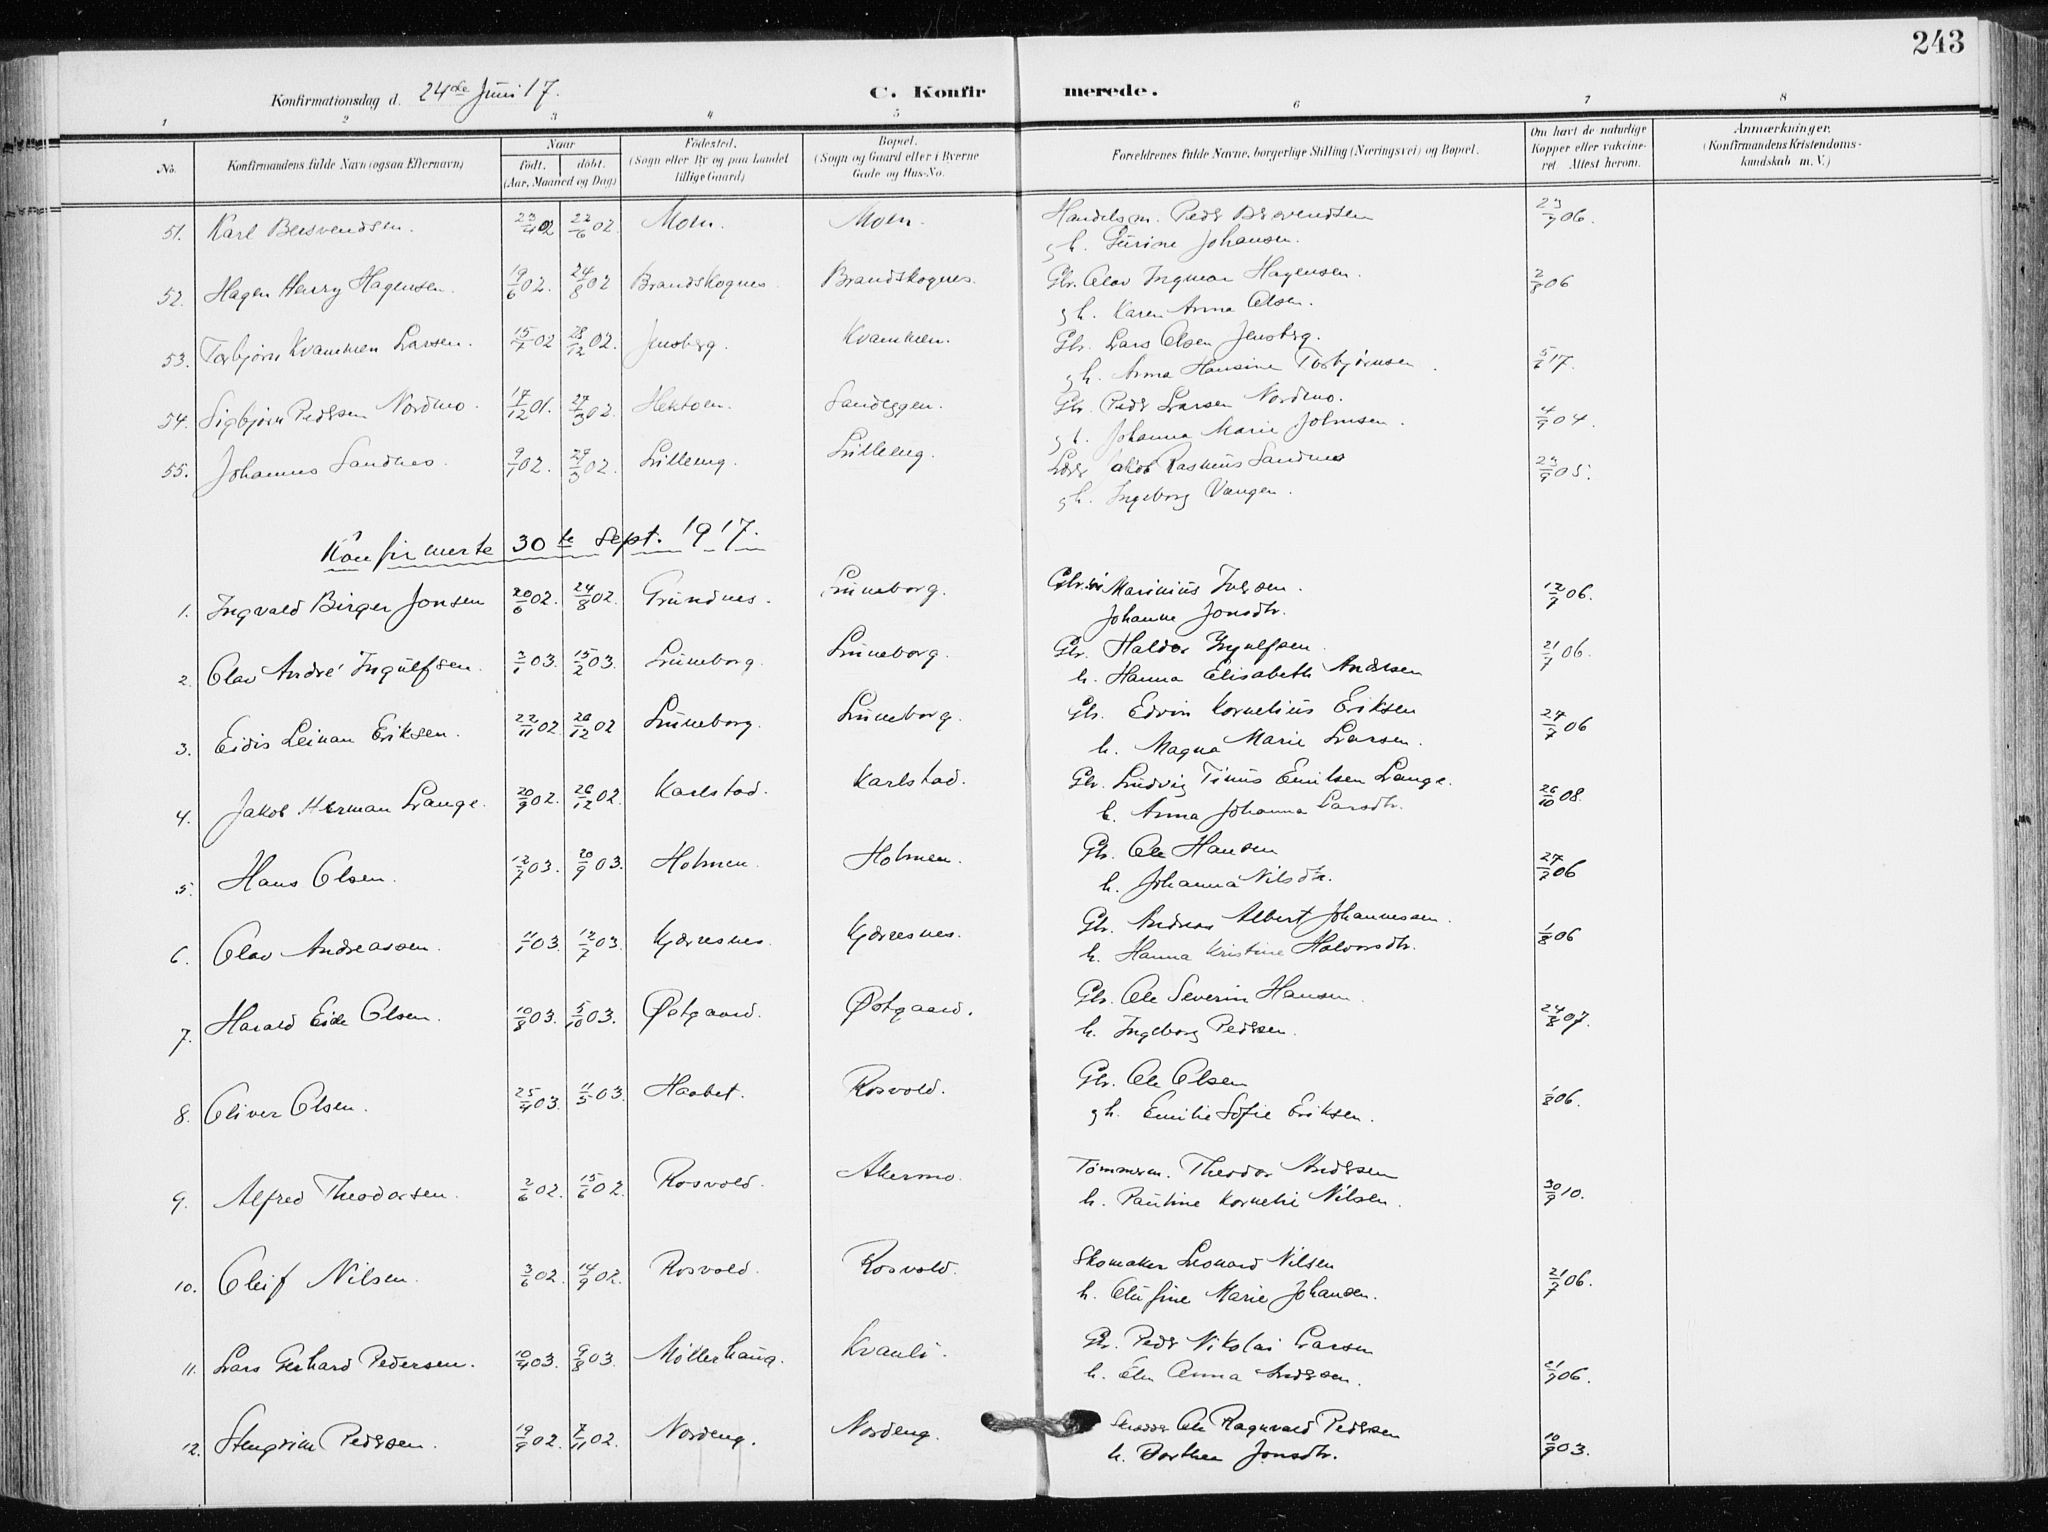 243
Konfirmationsdag d. 24de Juni 17.
C. Konfirmerede.
1 2 3 4 5 6 7 8
No.
Konfirmandens fulde Navn (ogsaa Efternavn)
Naar
født. døbt.
(Aar, Maaned og Dag)
Fødested.
(Sogn eller By og paa Landet
tillige Gaard)
Bopæl.
(Sogn og Gaard eller i Byerne
Gade og Hus-No.
Forældrenes fulde Navne, borgerlige Stilling (Næringsvei) og Bopæl.
Om havt de naturlige
Kopper eller vakcine-
ret. Attest herom.
Anmærkninger.
(Konfirmandens Kristendoms-
kundskab m. V.)
51. Karl Bersvendsen. 23/4 02 22/6 02. Moen. Moen. Handelsm. Peder Bersvendsen 23/7 06.
gh. Gurine Johansen.
52. Hagen Henry Hagensen. 19/6 02. 24/8 02 Brandskognes. Brandskognes. Gbr. Olav Ingmar Hagensen. 2/8 06
gh. Karen Anna Olsen.
53. Torbjørn Kvammen Larsen. 15/7 02 28/12 02. Jensberg. Kvammen. Gbr. Lars Olsen Jensberg.
gh. Anna Hansine Torbjørnsen. 5/6 17.
54. Sigbjørn Pedersen Nordmo. 17/12 01. 27/3 02. Hektoen. Sandeggen. Gbr. Peder Larsen Nordmo.
gh. Johanna Marie Johnsen. 4/9 04.
55. Johannes Sandnes. 9/1 02. 29/3 02. Lilleeng. Lilleeng. Lærer Jakob Rasmus Sandnes 23/9 05.
gh. Ingeborg Vangen.
Konfirmerte 30te Sept. 1917.
1. Ingvald Birger Jonsen 20/6 02. 24/8 02. Grundnes. Luneborg. Gbr. Marinius Iversen. 12/7 06.
Johanne Jonsdtr.
2. Olav André Ingulfsen. 3/1 03. 15/2 03. Luneborg. Luneborg. Gbr. Haldor Ingulfsen 21/7 06.
h. Hanna Elisabeth Andersen
3. Eidis Leinan Eriksen. 22/11 02. 26/12 02 Luneborg. Luneborg. Gbr. Edvin Kornelius Eriksen 27/7 06
h. Magna Marie Larsen.
4. Jakob Herman Lange. 20/9 02. 26/12 02. Karlstad. Karlstad. Gbr. Ludvig Tinus Emilsen Lange. 26/10 08.
h. Anna Johanna Larsdtr.
5. Hans Olsen. 12/7 03. 20/9 03. Holmen. Holmen. Gbr. Ole Hansen 27/7 06
h. Johanna Nilsdtr.
6. Olav Andreassen. 11/1 03. 12/7 03. Kjærresnes. Kjærresnes. Gbr. Andreas Albert Johannessen. 1/8 06
h. Hanna Kristine Halvorsdtr.
7. Harald Eide Olsen. 10/8 03. 5/10 03. Østgaard. Østgaard. Gbr. Ole Severin Hansen 24/8 07.
h. Ingeborg Pedersen.
8. Oliver Olsen. 25/4 03. 11/5 03. Haabet. Rosvold. Gbr. Ole Olsen 1/8 06.
gh. Emilie Sofie Eriksen.
9. Alfred Theodorsen. 2/6 02. 15/6 02. Rosvold. Akermo. Tømmerm. Theodor Andersen 30/9 10.
h. Pauline Kornelie Nilsen.
10. Oleif Nilsen. 3/6 02. 14/9 02. Rosvold. Rosvold. Skomaker Leonard Nilsen 21/7 06.
h. Olufine Marie Johansen.
11. Lars Gerhard Pedersen. 10/4 03. 9/8 03. Møllerhaug. Kvanli. Gbr. Peder Nikolai Larsen
h. Elen Anna Andersen. 21/7 06.
12. Stengrim Pedersen. 19/9 02. 7/11 02. Nordeng. Nordeng. Skrædder Ole Ragnvald Pedersen 10/9 03.
h. Dorthea Jonsdtr.